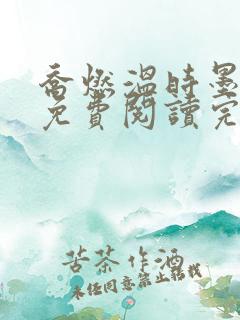 喬燃溫時墨
免費閱讀完
苦茶作酒
未经同意禁止转载